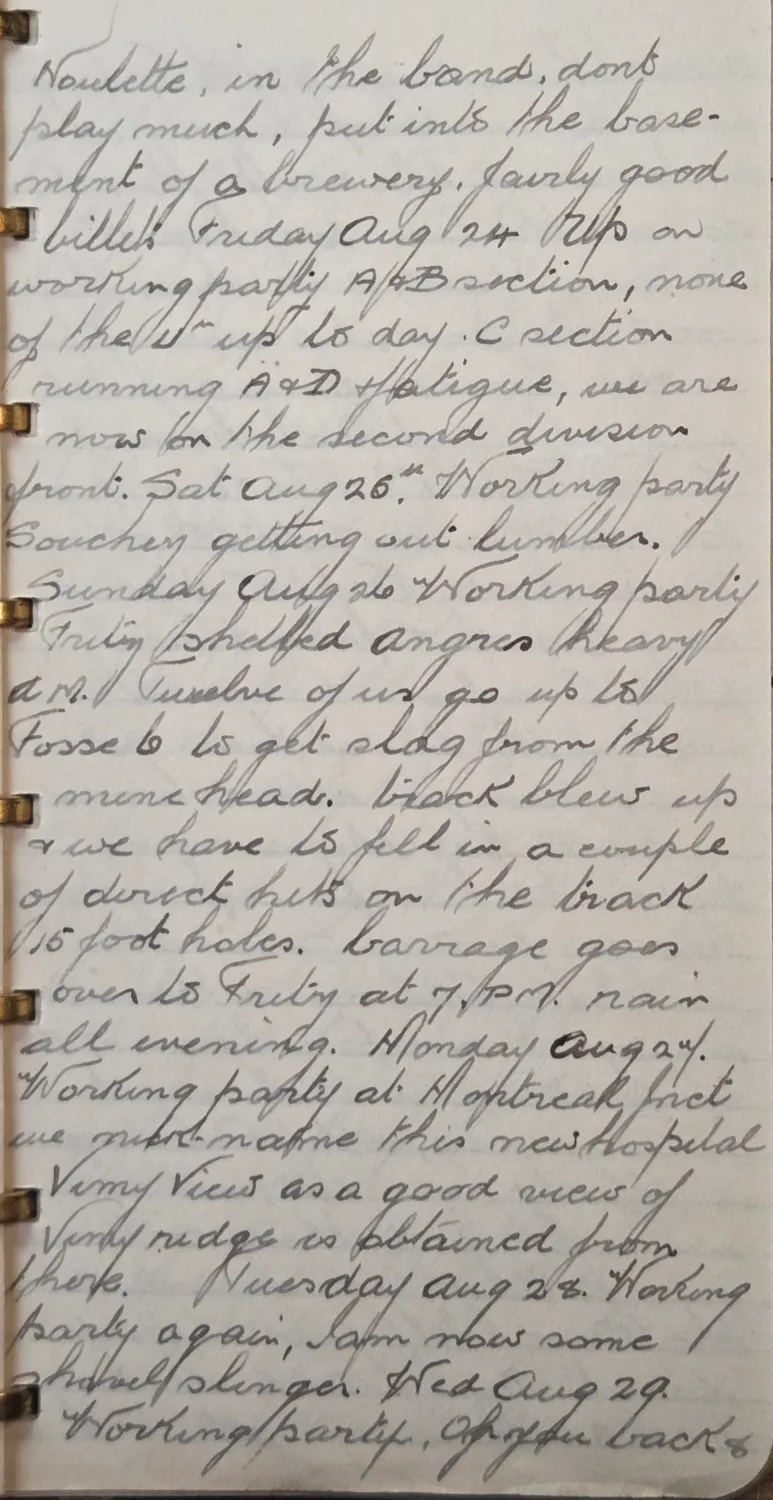 Noulette, in the band. dont
play much, put into the base-
ment of a brewery. fairly good
billets Friday Aug 24 Up on
working party A & B section, none
of the up to day. C section
running A & D fatigue, we are
now on the second division
front. Sat Aug 25th. Working party
Souchey getting out lumber.
Sunday Aug 26 Working party
Fritz shelled Angres heavy
A M. Twelve of us go up to
Fosse 6 to get slag from the
mine head. track blew up
& we have to fill in a couple
of direct hits on the track
15 foot holes. barrage goes
over to Fritz at 7. P M. rain
all evening. Monday Aug 27.
Working party at Montreal Jnct
we nick-name this new hospital
Vimy View as a good view of
Vimy ridge is obtained from
there. Tuesday Aug 28. Working
party again, I am now some
shovel slinger. Wed Aug 29.
Working party, Oh you back &